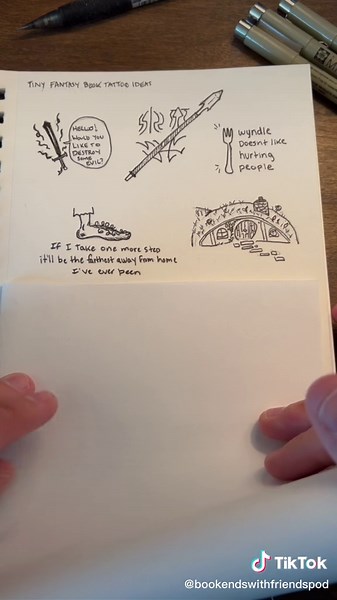 TINY FANTASY BOOK TATTOO IDEAS
HELLO!
WOULD YOU
LIKE TO
DESTROY
SOME
EVIL?
wyndle
Doesnt like
hurting
people
If I take one more step
it'll be the farthest away from home
I've ever been
TikTok
@bookendswithfriendspod